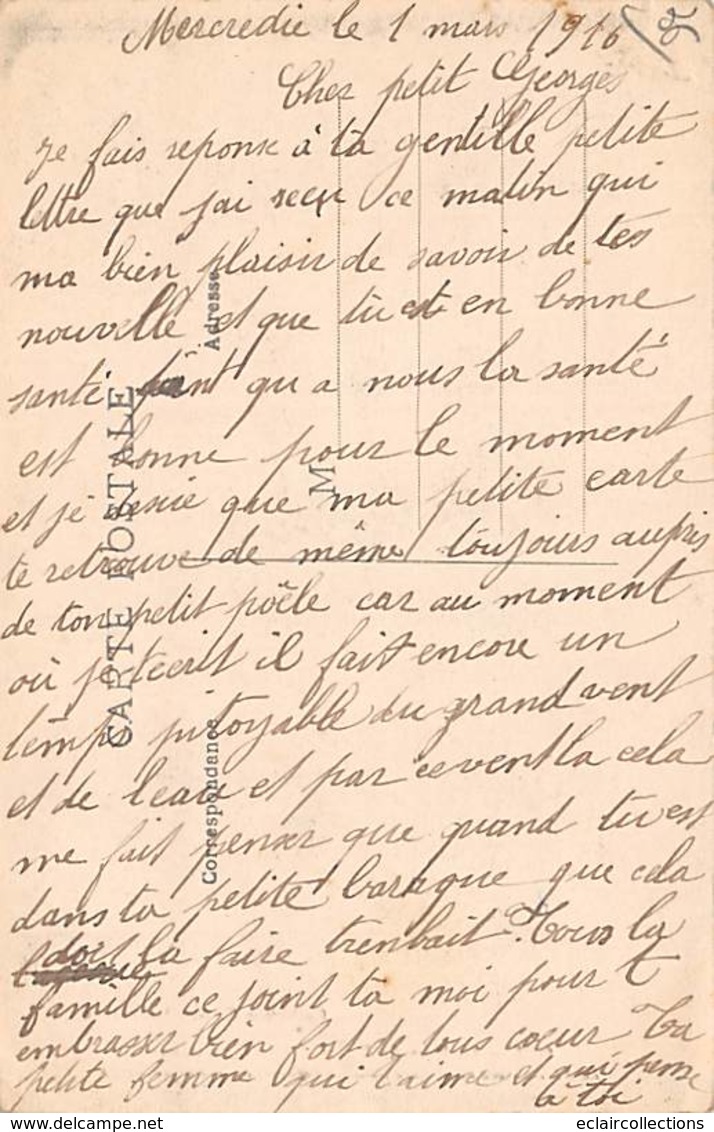 Mercredie le 1 mars 1916
Cher petit Georges
Je fais reponse à ta gentille petite
lettre que jai recu ce matin qui
ma bien plaisir de savoir de tes
nouvelle et que tu est en bonne
santé tant qu a nous la santé
est bonne pour le moment
et je desire que ma petite carte
te retrouve de même toujours aupris
de ton petit poêle car au moment
où je técrit il fait encore un
temps pitoyable du grand vent
et de leau et par ce vent la cela
me fait penser que quand tu est
dans ta petite baraque que cela
doit la faire trenbait. Tous la
famille ce joint ta moi pour t
embrasser bien fort de tous cœur Ta
petite femme qui t'aime et qui pense
a toi
CARTE POSTALE
Correspondance
Adresse
M
eclaircollections